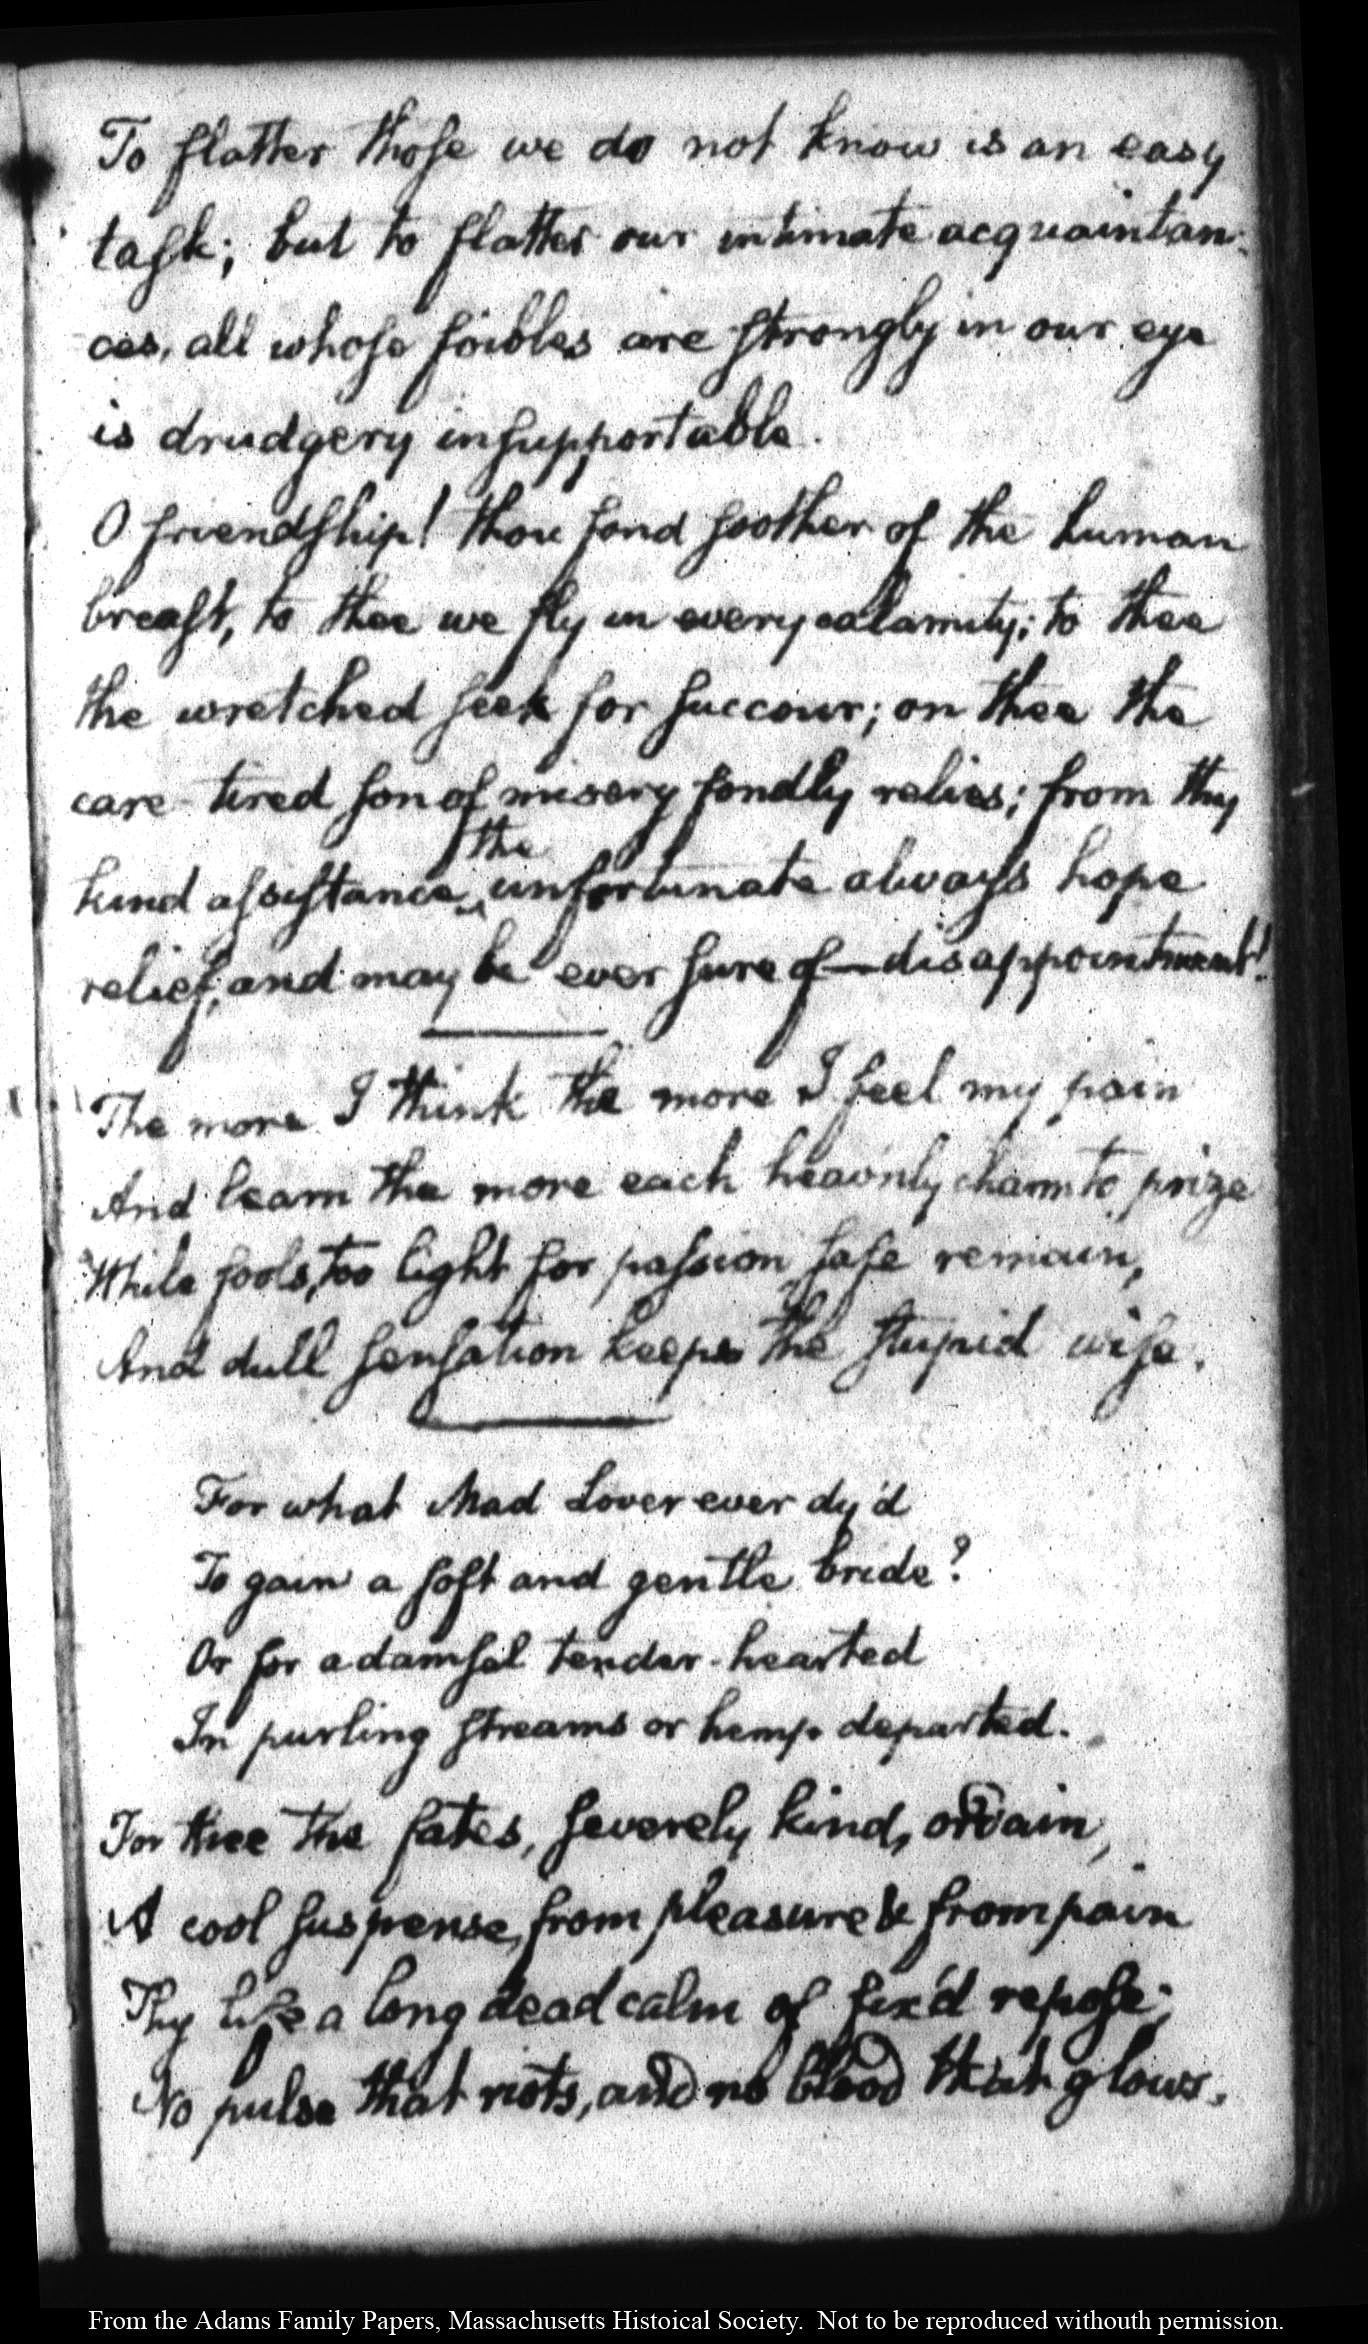 To flatter those we do not know is an easy
task; but to flatter our intimate acquaintan:
ces, all whose foibles are strongly in our eye
is drudgery insupportable.
O friendship! thou fond soother of the human
breast, to thee we fly in every calamity; to thee
the wretched seek for succour; on thee the
care-tired son of misery fondly relies; from thy
the
kind assistance unfortunate always hope
relief, and may be ever sure of—disappointment!
The more I think the more I feel my pain
And learn the more each heav'nly charm to prize
While fools, too light for passion, safe remain,
And dull sensation keeps the stupid wise.
For what Mad Lover ever dy'd
To gain a soft and gentle bride?
Or for a damsel tender-hearted
In purling streams or hemp departed.
For thee the fates, severely kind, ordain,
A cool suspense, from pleasure & from pain
Thy life a long dead calm of fix'd repose;
No pulse that riots, and no blood that glows.
From the Adams Family Papers, Massachusetts Histoical Society. Not to be reproduced withouth permission.